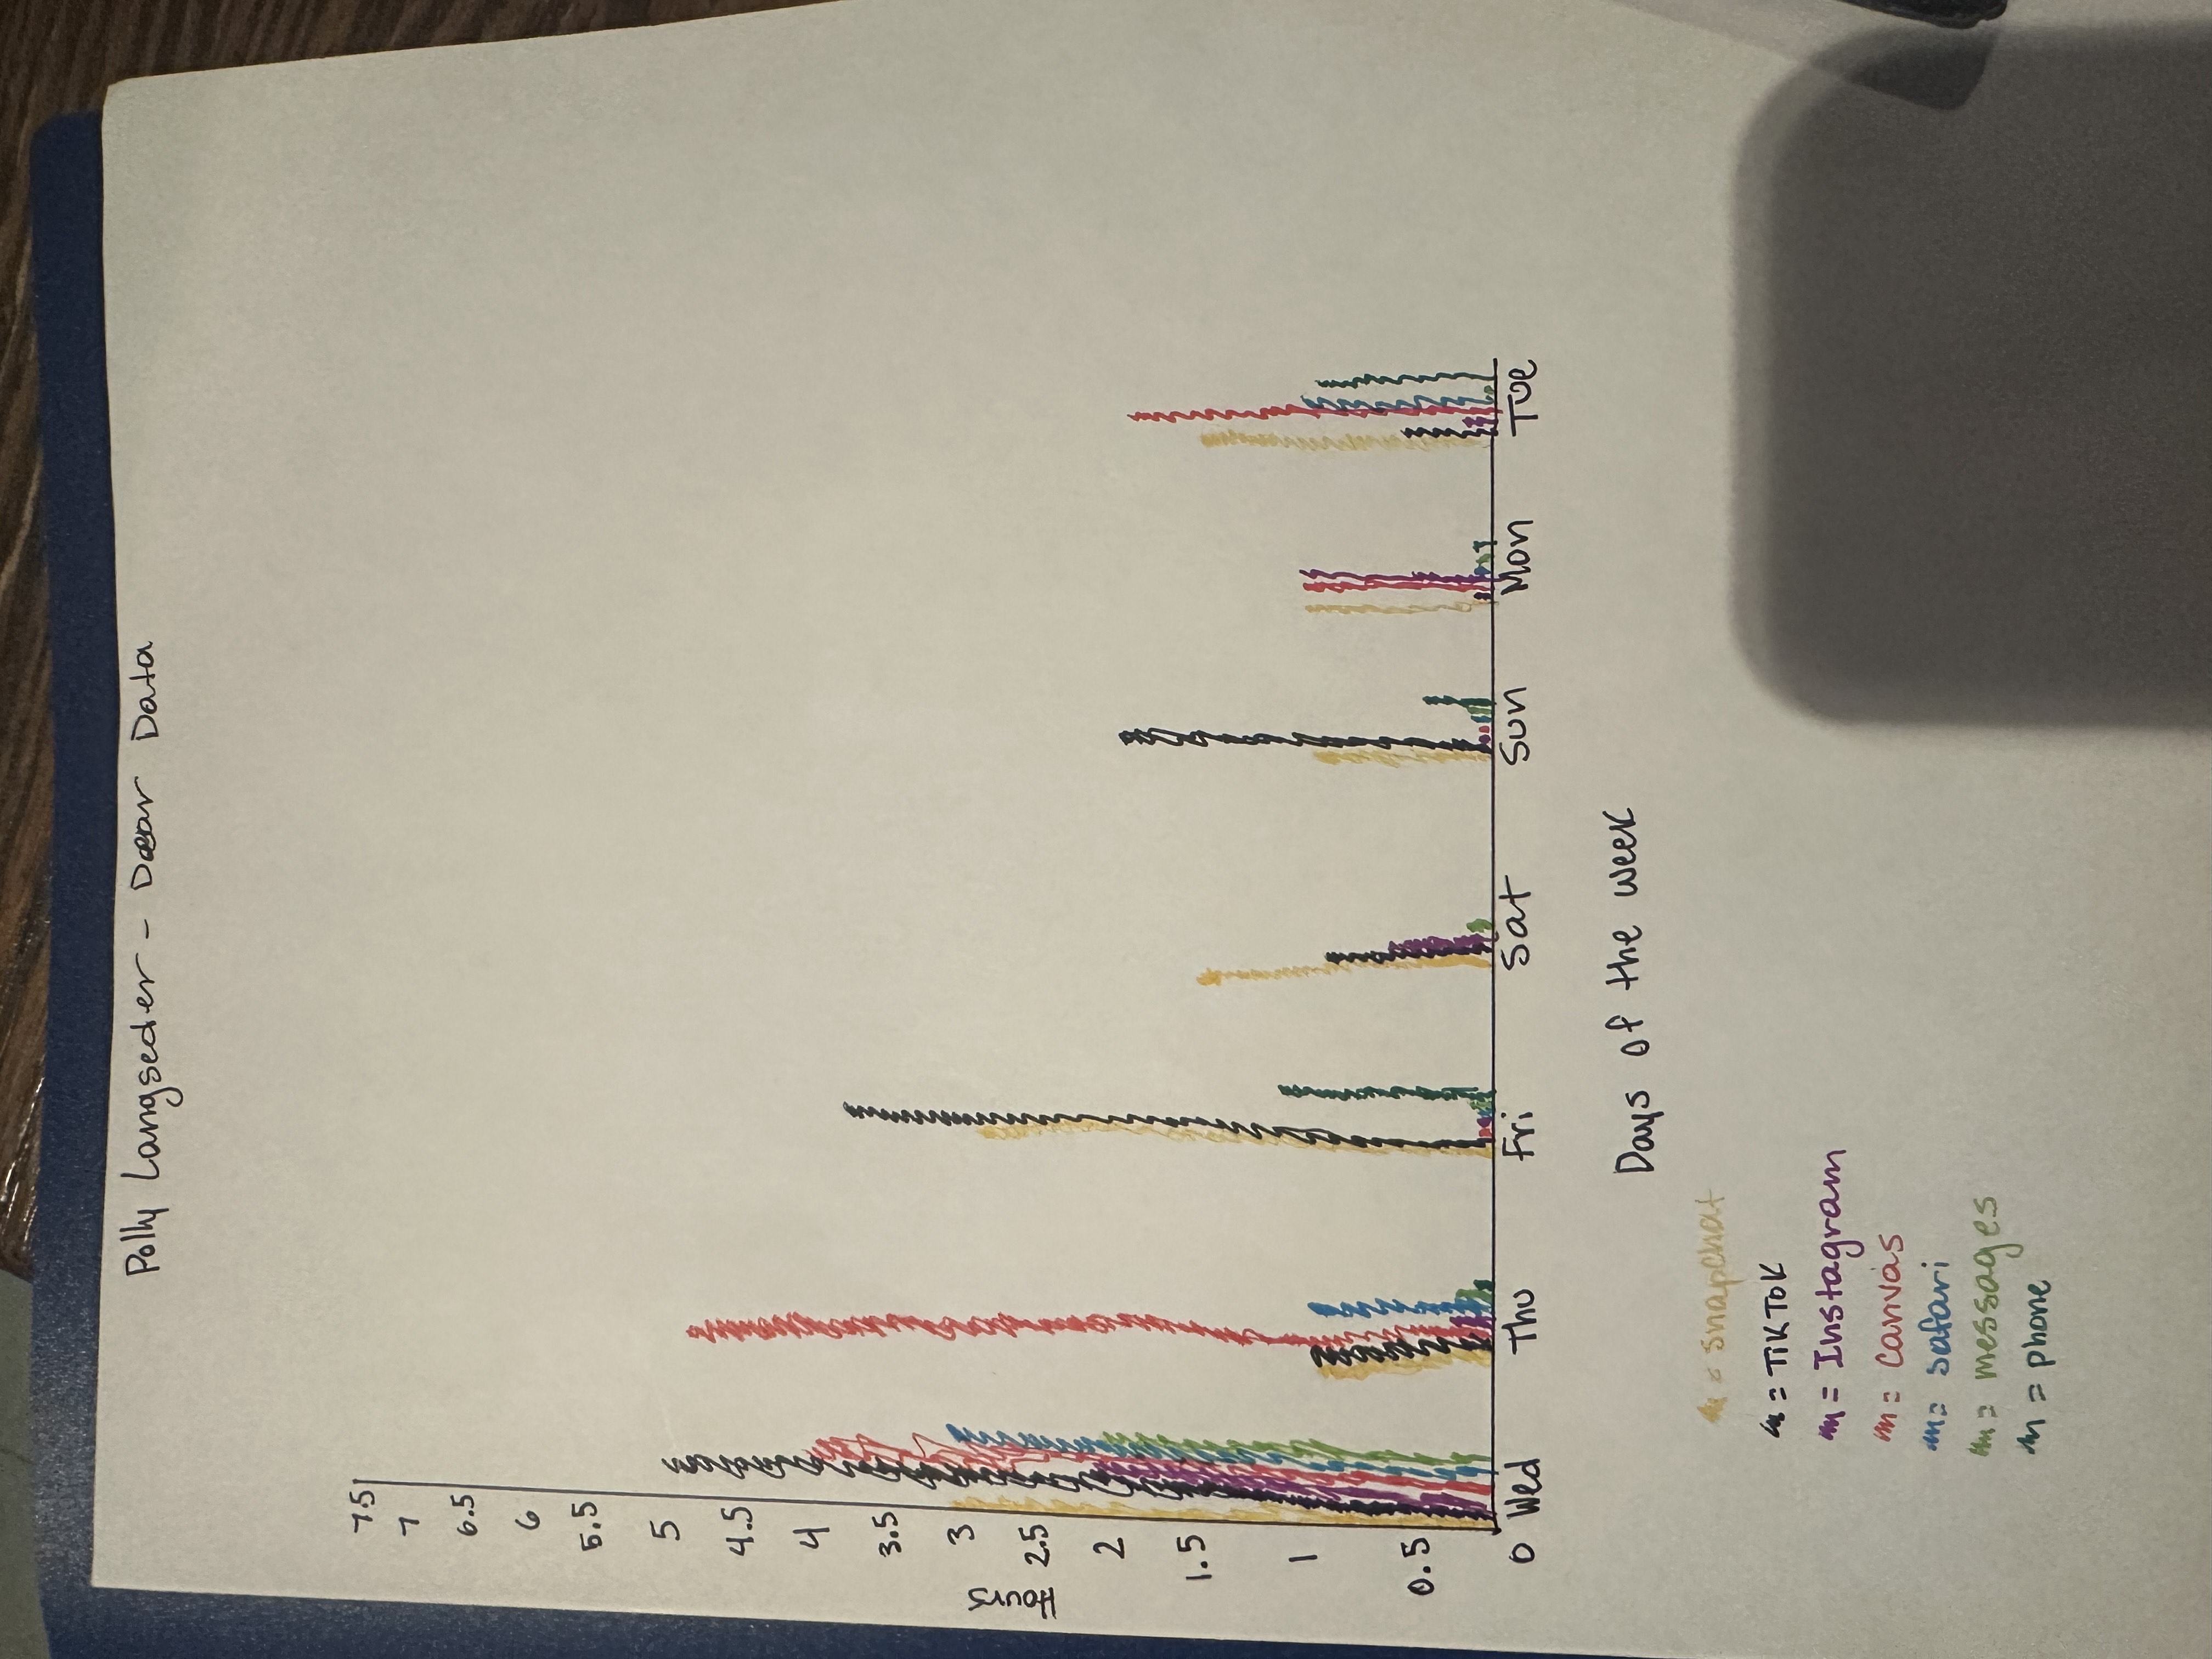 Polly Langseder - Dear Data
7.5
7
6.5
6
5.5
5
4.5
4
3.5
3
2.5
2
1.5
1
0.5
0
Hours
Wed Thu Fri Sat Sun Mon Tue
Days of the week
= snapchat
= TikTok
= Instagram
= canvas
= safari
= messages
= phone